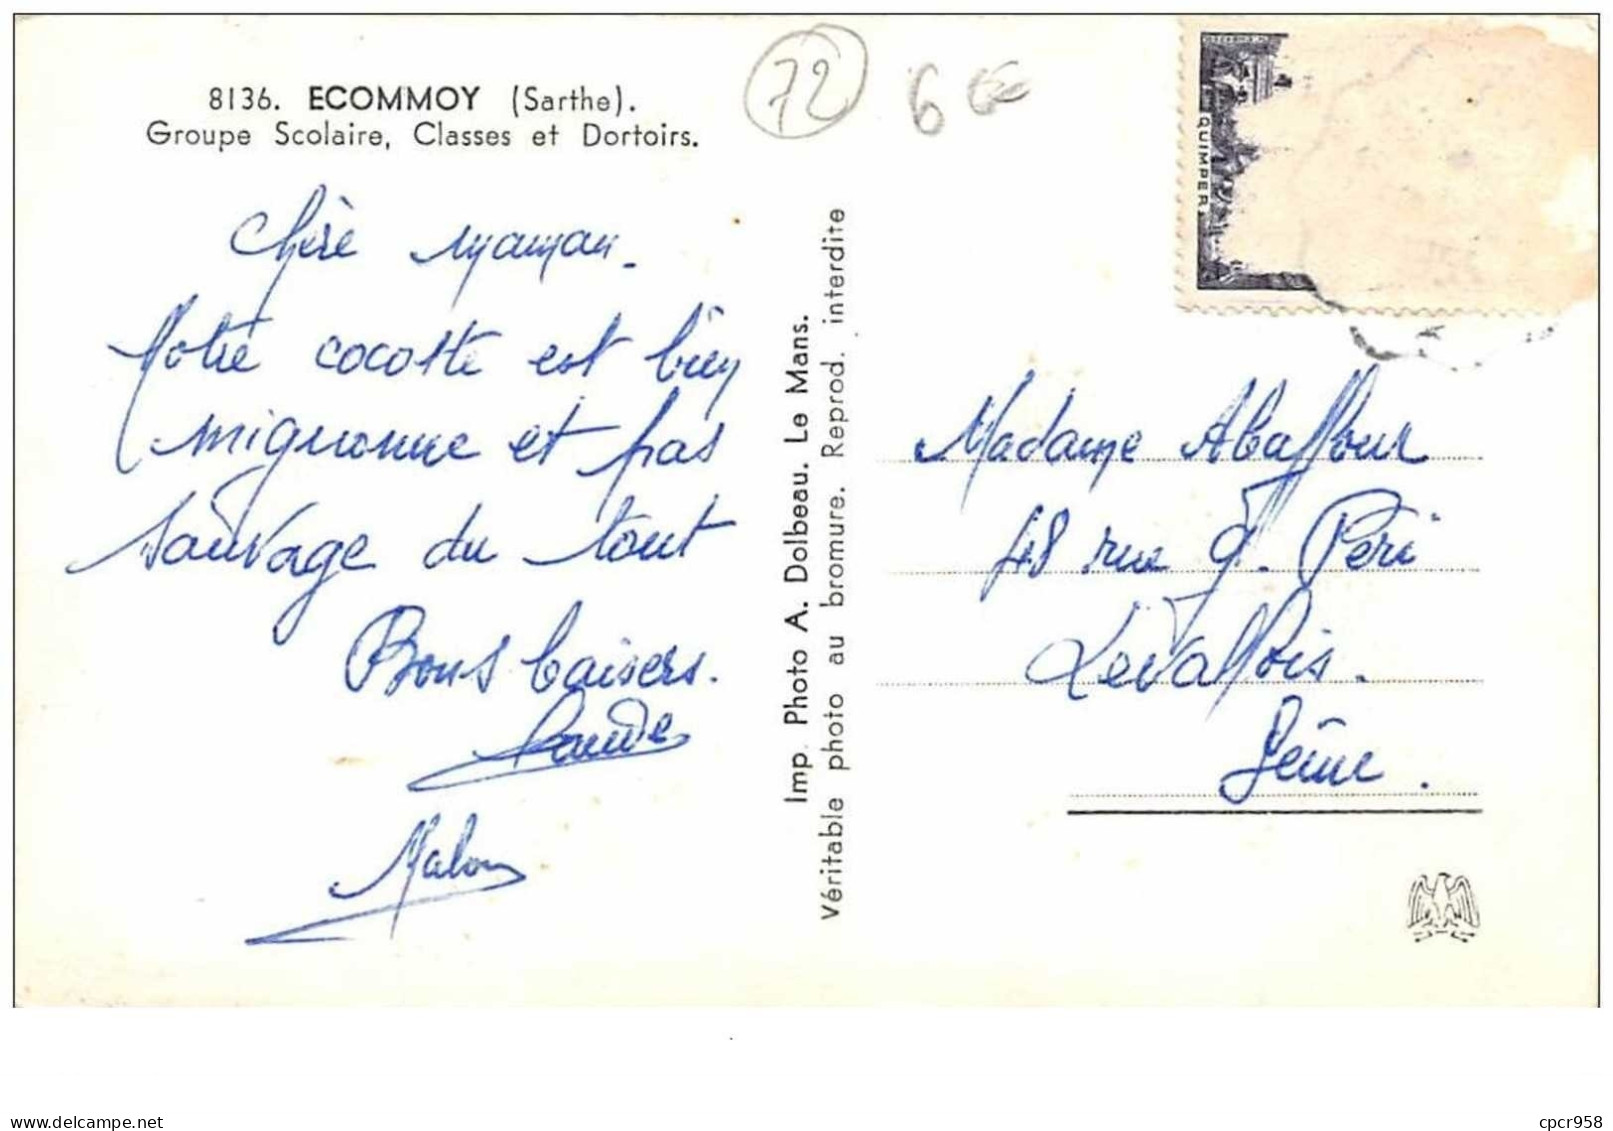 8136. ECOMMOY (Sarthe).
Groupe Scolaire, Classes et Dortoirs.
72
6 €
QUIMPER
Chère maman.
Notre cocotte est bien
mignonne et pas
sauvage du tout
Bons baisers.
Imp. Photo A. Dolbeau. Le Mans.
Véritable photo au bromure. Reprod. interdite
Madame
48 rue G. Péri
Levallois.
Seine.
delcampe.net
cpcr958